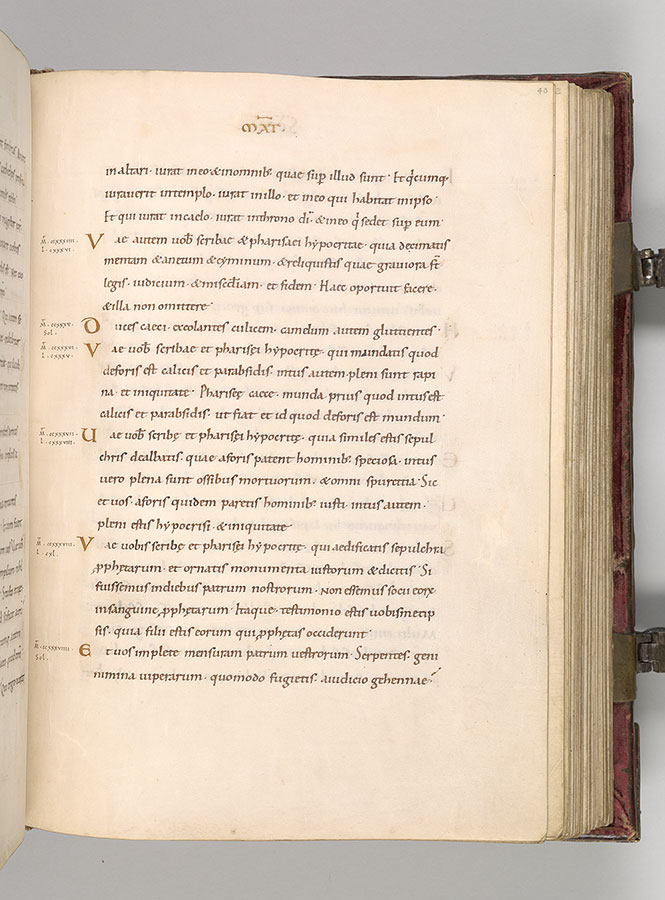 MAT.
40
in altari. iurat in eo & in omnib; quae sup̄ illud sunt. Et q̇cumq;
iurauerit in templo. iurat in illo. et in eo qui habitat in ipso.
Et qui iurat in caelo. iurat in throno dī. & in eo q̇ sedet sup̄ eum.
Vae autem uob̄ scribae & pharisaei hypocritae. quia decimatis
mentam & anetum & cyminum. & reliquistis quae grauiora st̄
legis. iudicium. & misc̄diam. et fidem. Haec oportuit facere.
& illa non omittere.
Duces caeci. excolantes culicem. camelum autem gluttientes.
Vae uob̄ scribae et pharisei hypocritę. qui mundatis quod
deforis est calicis et parabsidis. intus autem pleni sunt rapi
na et iniquitate. Phariseę caece. munda prius quod intus est
calicis et parabsidis. ut fiat et id quod deforis est mundum.
Uae uob̄ scribę et pharisei hypocritę. quia similes estis sepul
chris dealbatis. quae aforis patent hominib; speciosa. intus
uero plena sunt ossibus mortuorum. & omni spurcitia. Sic
et uos. aforis quidem paretis hominib; iusti. intus autem.
pleni estis hypocrisi. & iniquitate.
Vae uobis scribę et pharisei hypocritę. qui aedificatis sepulchra
ꝓphetarum. et ornatis monumenta iustorum & dicitis. Si
fuissemus in diebus patrum nostrorum. non essemus socii eorꝝ
in sanguine ꝓphetarum. Itaque. testimonio estis uobismetip
sis. quia filii estis eorum qui ꝓphętas occiderunt
Et uos implete mensuram patrum uestrorum. Serpentes. geni
nimina uiperarum. quomodo fugietis. a iudicio gehennae.